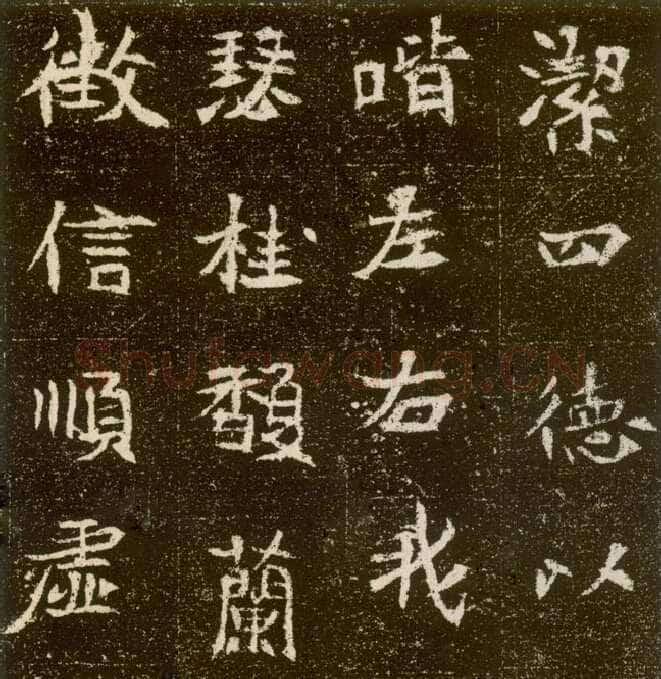 潔四德以
喈左右我
瑟桂馥蘭
徵信順虛
Shufawang.CN